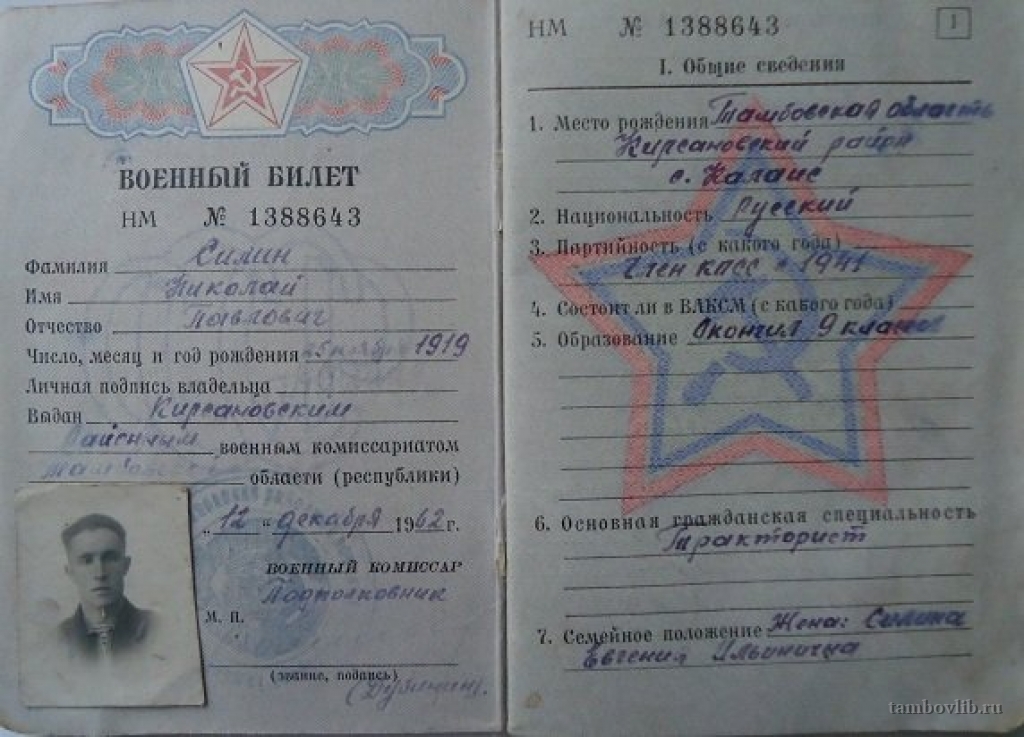 ВОЕННЫЙ БИЛЕТ
НМ № 1388643
Фамилия Силин
Имя Николай
Отчество Павлович
Число, месяц и год рождения 1919
Личная подпись владельца
Выдан Кирсановским
Районным военным комиссариатом
области (республики)
„12“ декабря 1962 г.
ВОЕННЫЙ КОМИССАР
Подполковник
М. П.
(звание, подпись)
НМ № 1388643
1
I. Общие сведения
1. Место рождения Тамбовская область
Кирсановский район
с. Калаис
2. Национальность Русский
3. Партийность (с какого года)
Член КПСС с 1941
4. Состоит ли в ВЛКСМ (с какого года)
5. Образование Окончил 9 классов
6. Основная гражданская специальность
Тракторист
7. Семейное положение Жена: Силина
Евгения Ильинична
tambovlib.ru